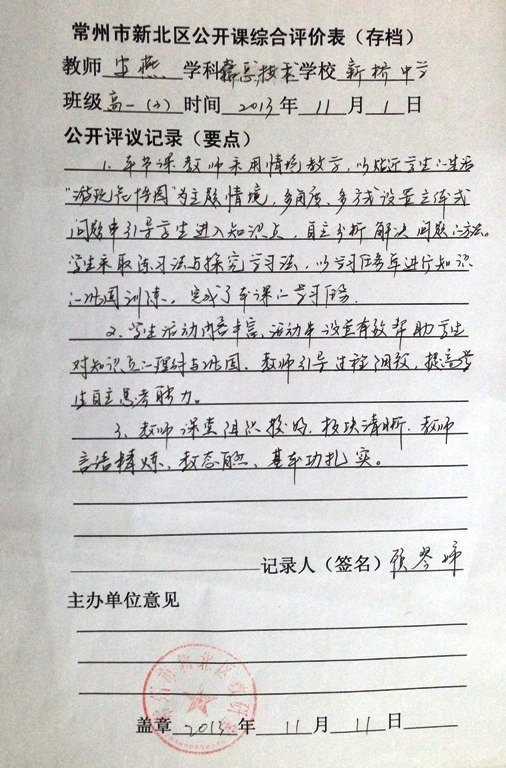 常州市新北区公开课综合评价表（存档）
教师 宋燕 学科 信息技术 学校 新桥中学
班级 高一（2） 时间 2013 年 11 月 1 日
公开评议记录（要点）
1、本节课教师采用情境教学，以贴近学生的生活
“游玩恐怖园”为主题情境，多角度、多方式设置立体式
问题串引导学生进入知识点，自主分析解决问题的方法。
学生采取练习法与探究学习法，以学习任务单进行知识
的巩固训练，完成了本课的学习任务。
2、学生活动内容丰富，活动单设置有效帮助学生
对知识点的理解与巩固。教师引导过程细致，提高学
生自主思考能力。
3、教师课堂组织较好，板块清晰，教师
言语精炼，教态自然，基本功扎实。
记录人（签名）顾琴
主办单位意见
常州市新北区教
盖章 2013 年 11 月 11 日